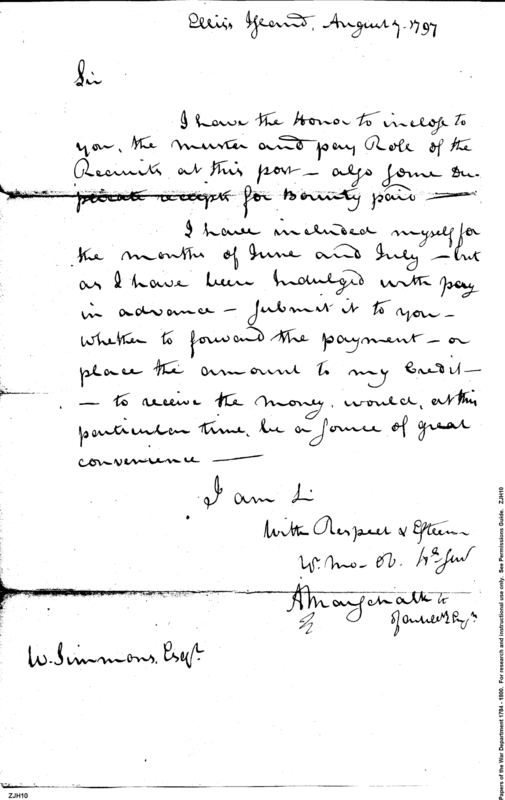 Ellis Island, August 7. 1797
Sir
I have the Honor to inclose to
you, the muster and pay Role of the
Recruits at this post – also some Du-
plicate receipts for Bounty paid —
I have included myself for
the months of June and July – but
as I have been Indulged with pay
in advance – submit it to you –
whether to forward the payment – or
place the amount to my Credit –
– to receive the money, would, at this
particular time, be a source of great
convenience —
I am Sir
With Respect & Esteem
Yr. Mo– Ob. Hble Ser
A Marschalk Lt
W. Simmons, Esqr.
ZJH10
Papers of the War Department 1784 - 1800. For research and instructional use only. See Permissions Guide. ZJH10